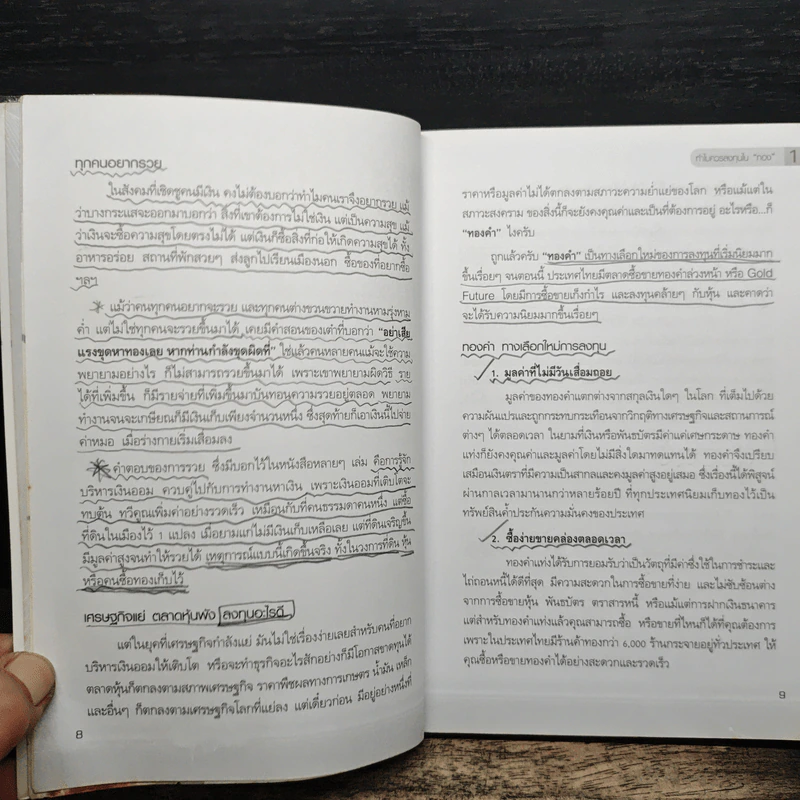 ทุกคนอยากรวย
ในสังคมที่เชิดชูคนมีเงิน คงไม่ต้องบอกว่าทำไมคนเราจึงอยากรวย แม้
ว่าบางกระแสจะออกมาบอกว่า สิ่งที่เขาต้องการไม่ใช่เงิน แต่เป็นความสุข แม้
ว่าเงินจะซื้อความสุขโดยตรงไม่ได้ แต่เงินก็ซื้อสิ่งที่ก่อให้เกิดความสุขได้ ทั้ง
อาหารอร่อย สถานที่พักสวยๆ ส่งลูกไปเรียนเมืองนอก ซื้อของที่อยากซื้อ
ฯลฯ
แม้ว่าคนทุกคนอยากจะรวย และทุกคนต่างขวนขวายทำงานหามรุ่งหาม
ค่ำ แต่ไม่ใช่ทุกคนจะรวยขึ้นมาได้ เคยมีคำสอนของเต๋าที่บอกว่า "อย่าเสีย
แรงขุดหาทองเลย หากท่านกำลังขุดผิดที่" ใช่แล้วคนหลายคนแม้จะใช้ความ
พยายามอย่างไร ก็ไม่สามารถรวยขึ้นมาได้ เพราะเขาพยายามผิดวิธี ราย
ได้ที่เพิ่มขึ้น ก็มีรายจ่ายที่เพิ่มขึ้นมาบั่นทอนความรวยอยู่ตลอด พยายาม
ทำงานจนจะเกษียณก็มีเงินเก็บเพียงจำนวนหนึ่ง ซึ่งสุดท้ายก็เอาเงินนี้ไปจ่าย
ค่าหมอ เมื่อร่างกายเริ่มเสื่อมลง
คำตอบของการรวย ซึ่งมีบอกไว้ในหนังสือหลายๆ เล่ม คือการรู้จัก
บริหารเงินออม ควบคู่ไปกับการทำงานหาเงิน เพราะเงินออมที่เติบโตจะ
ทบต้น ทวีคูณเพิ่มค่าอย่างรวดเร็ว เหมือนกับที่คนธรรมดาคนหนึ่ง แต่ซื้อ
ที่ดินในเมืองไว้ 1 แปลง เมื่อยามแก่ไม่มีเงินเก็บเหลือเลย แต่ที่ดินเจริญขึ้น
มีมูลค่าสูงจนทำให้รวยได้ เหตุการณ์แบบนี้เกิดขึ้นจริง ทั้งในวงการที่ดิน หุ้น
หรือคนซื้อทองเก็บไว้
เศรษฐกิจแย่ ตลาดหุ้นพัง ลงทุนอะไรดี
แต่ในยุคที่เศรษฐกิจกำลังแย่ มันไม่ใช่เรื่องง่ายเลยสำหรับคนที่อยาก
บริหารเงินออมให้เติบโต หรือจะทำธุรกิจอะไรสักอย่างก็มีโอกาสขาดทุนได้
ตลาดหุ้นก็ตกลงตามสภาพเศรษฐกิจ ราคาพืชผลทางการเกษตร น้ำมัน เหล็ก
และอื่นๆ ก็ตกลงตามเศรษฐกิจโลกที่แย่ลง แต่เดี๋ยวก่อน มีอยู่อย่างหนึ่งที่
8
ทำไมควรลงทุนใน "ทอง" 1
ราคาหรือมูลค่าไม่ได้ตกลงตามสภาวะความย่ำแย่ของโลก หรือแม้แต่ใน
สภาวะสงคราม ของสิ่งนี้ก็จะยังคงคุณค่าและเป็นที่ต้องการอยู่ อะไรหรือ...ก็
"ทองคำ" ไงครับ
ถูกแล้วครับ "ทองคำ" เป็นทางเลือกใหม่ของการลงทุนที่เริ่มนิยมมาก
ขึ้นเรื่อยๆ จนตอนนี้ ประเทศไทยมีตลาดซื้อขายทองคำล่วงหน้า หรือ Gold
Future โดยมีการซื้อขายเก็งกำไร และลงทุนคล้ายๆ กับหุ้น และคาดว่า
จะได้รับความนิยมมากขึ้นเรื่อยๆ
ทองคำ ทางเลือกใหม่การลงทุน
1. มูลค่าที่ไม่มีวันเสื่อมถอย
มูลค่าของทองคำแตกต่างจากสกุลเงินใดๆ ในโลก ที่เต็มไปด้วย
ความผันแปรและถูกกระทบกระเทือนจากวิกฤติทางเศรษฐกิจและสถานการณ์
ต่างๆ ได้ตลอดเวลา ในยามที่เงินหรือพันธบัตรมีค่าแค่เศษกระดาษ ทองคำ
แท่งก็ยังคงคุณค่าและมูลค่าโดยไม่มีสิ่งใดมาทดแทนได้ ทองคำจึงเปรียบ
เสมือนเงินตราที่มีความเป็นสากลและคงมูลค่าสูงอยู่เสมอ ซึ่งเรื่องนี้ได้พิสูจน์
ผ่านกาลเวลามานานกว่าหลายร้อยปี ที่ทุกประเทศนิยมเก็บทองไว้เป็น
ทรัพย์สินค้ำประกันความมั่นคงของประเทศ
2. ซื้อง่ายขายคล่องตลอดเวลา
ทองคำแท่งได้รับการยอมรับว่าเป็นวัตถุที่มีค่าซึ่งใช้ในการชำระและ
ไถ่ถอนหนี้ได้ดีที่สุด มีความสะดวกในการซื้อขายที่ง่าย และไม่ซับซ้อนต่าง
จากการซื้อขายหุ้น พันธบัตร ตราสารหนี้ หรือแม้แต่การฝากเงินธนาคาร
แต่สำหรับทองคำแท่งแล้วคุณสามารถซื้อ หรือขายที่ไหนก็ได้ที่คุณต้องการ
เพราะในประเทศไทยมีร้านค้าทองกว่า 6,000 ร้านกระจายอยู่ทั่วประเทศ ให้
คุณซื้อหรือขายทองคำได้อย่างสะดวกและรวดเร็ว
9